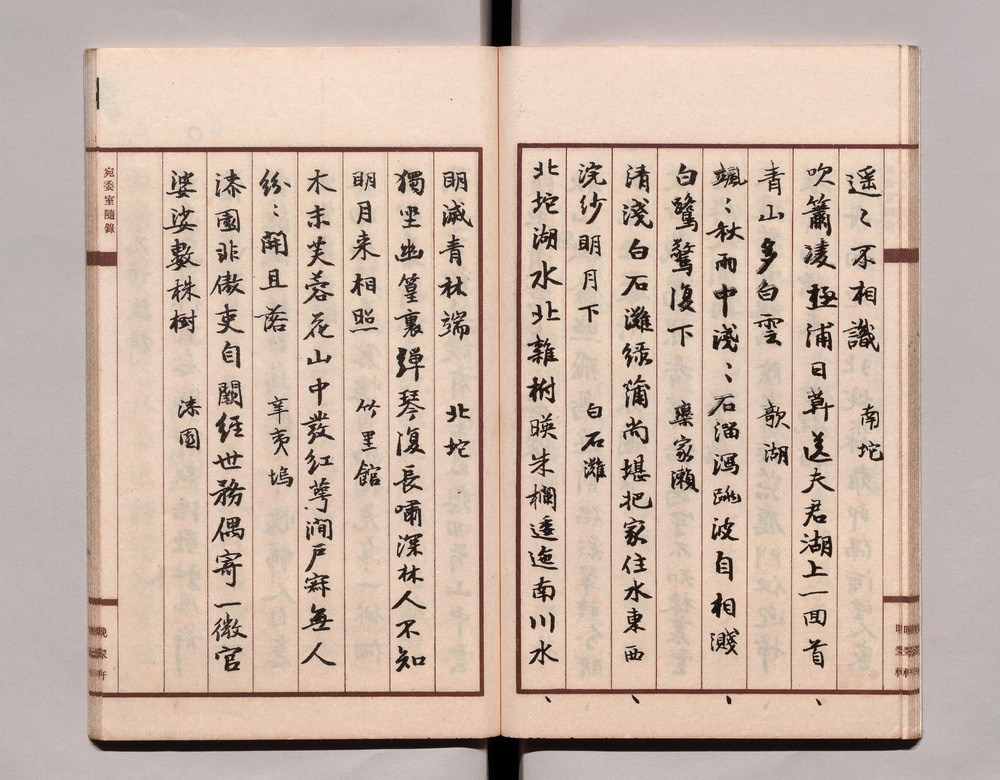 遥〻不相識 南垞
吹簫凌極浦日暮送夫君湖上一回首、
青山多白雲 欹湖
颯〻秋雨中淺〻石溜瀉跳波自相濺
白鷺驚復下 欒家瀨
清淺白石灘綠蒲尚堪把家住水東西、
浣紗明月下 白石灘
北垞湖水北雜樹暎朱欄逶迤南川水、
明滅青林端 北垞
獨坐幽篁裏彈琴復長嘯深林人不知
明月来相照 竹里館
木末芙蓉花山中發紅萼澗戶寂無人
紛〻開且落 辛夷塢
漆園非傲吏自闕經世務偶寄一微官
婆娑數株樹 漆園
宛委室隨錄